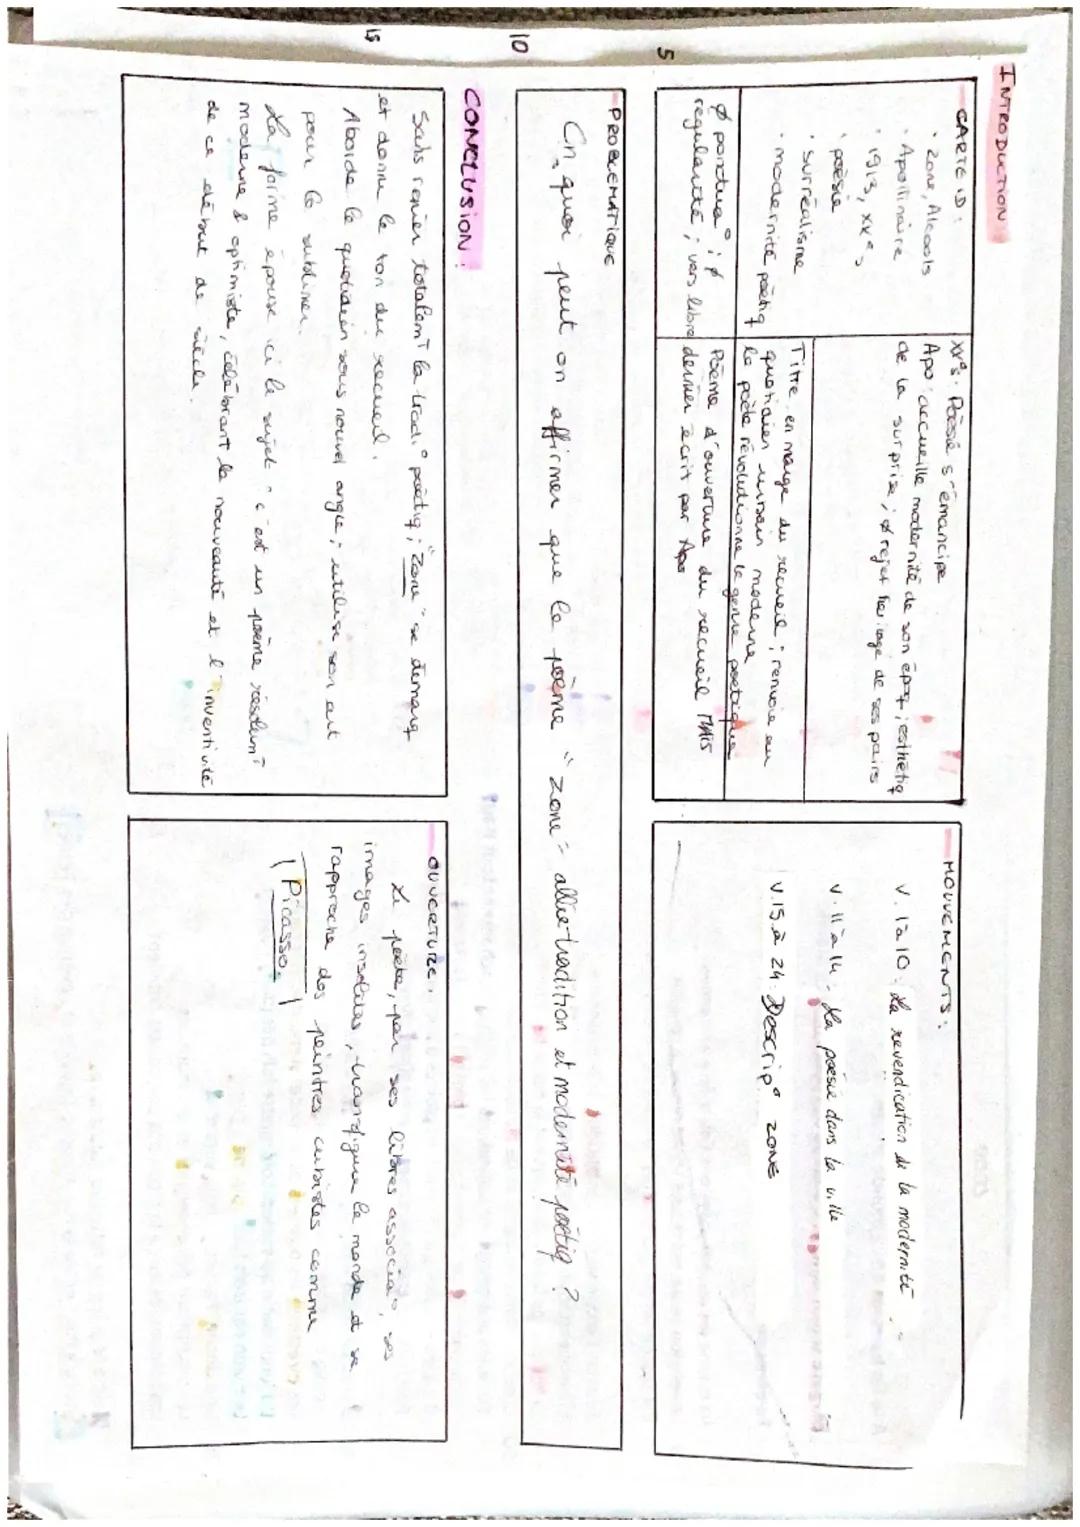 INTRODUCTION :
CARTE ID :
• Zone, Alcools
• Apollinaire
• 1913, XXe s
• poésie
• surréalisme
• modernité poétiq
ø ponctua° ; ø
régularité ; vers libre
XXe s : Poésie s'émancipe
Apo : accueille modernité de son époq ; esthétiq
de la surprise ; ø rejet héritage de ses pairs
Titre en marge du recueil ; renvoie au
quotidien urbain moderne
le poète révolutionne le genre poétique
Poème d'ouverture du recueil MAIS
dernier écrit par Apo
MOUVEMENTS :
V. 1 à 10 : La revendication de la modernité
V. 11 à 14 : La poésie dans la ville
V. 15 à 24 : Descrip° zone
PROBLEMATIQUE
En quoi peut on affirmer que le poème "Zone" allie tradition et modernité poétiq ?
CONCLUSION :
Sans renier totalemT la tradi° poétiq ; "Zone" se démarq
et donne le ton du recueil.
Aborde le quotidien sous nouvel angle ; utilise son art
pour le sublimer.
La forme épouse ici le sujet : c'est un poème résolumT
moderne & optimiste, célébrant la nouveauté et l'inventivité
de ce début de siècle.
OUVERTURE :
Le poète, par ses libres associa°, ses
images insolites, transfigure le monde et se
rapproche des peintres cubistes comme
Picasso.
5
10
15